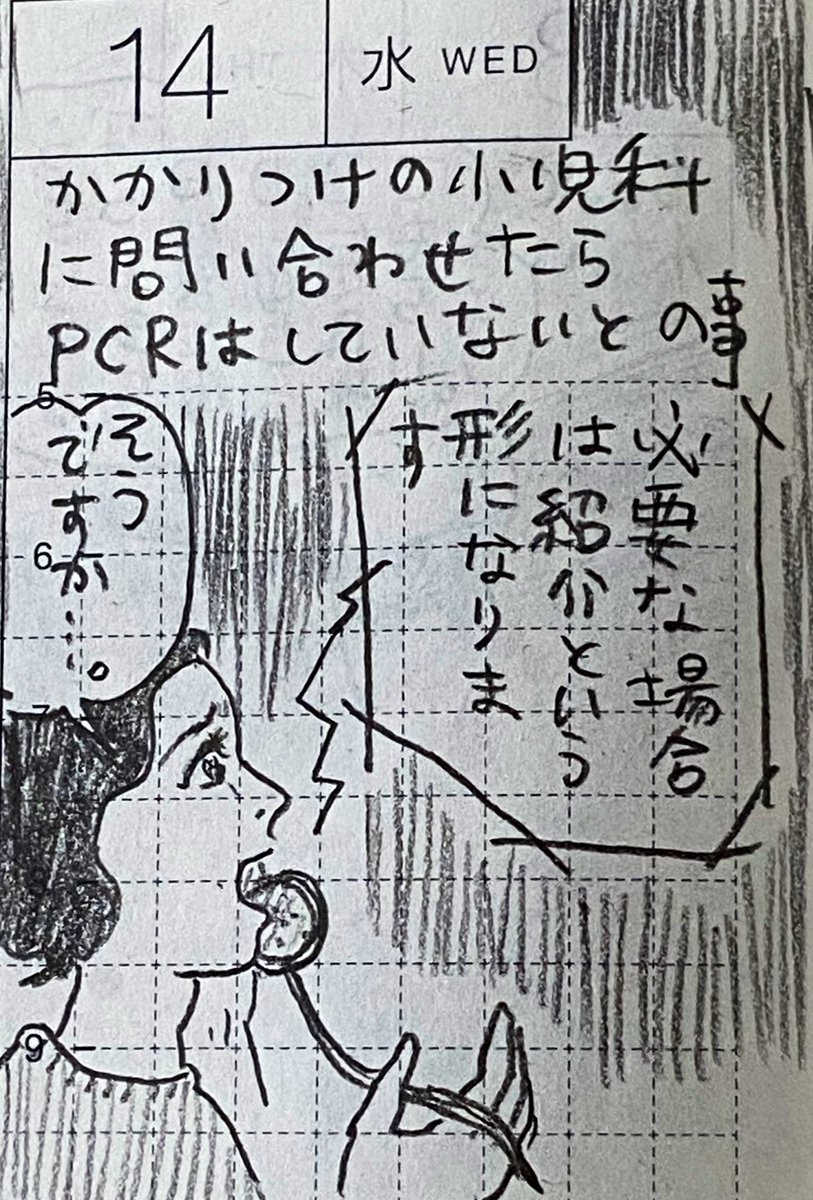 14
水 WED
かかりつけの小児科
に問い合わせたら
PCRはしていないとの事
必要な場合
は紹介という
形になりま
す
そう
ですか…。
5
6
7
9